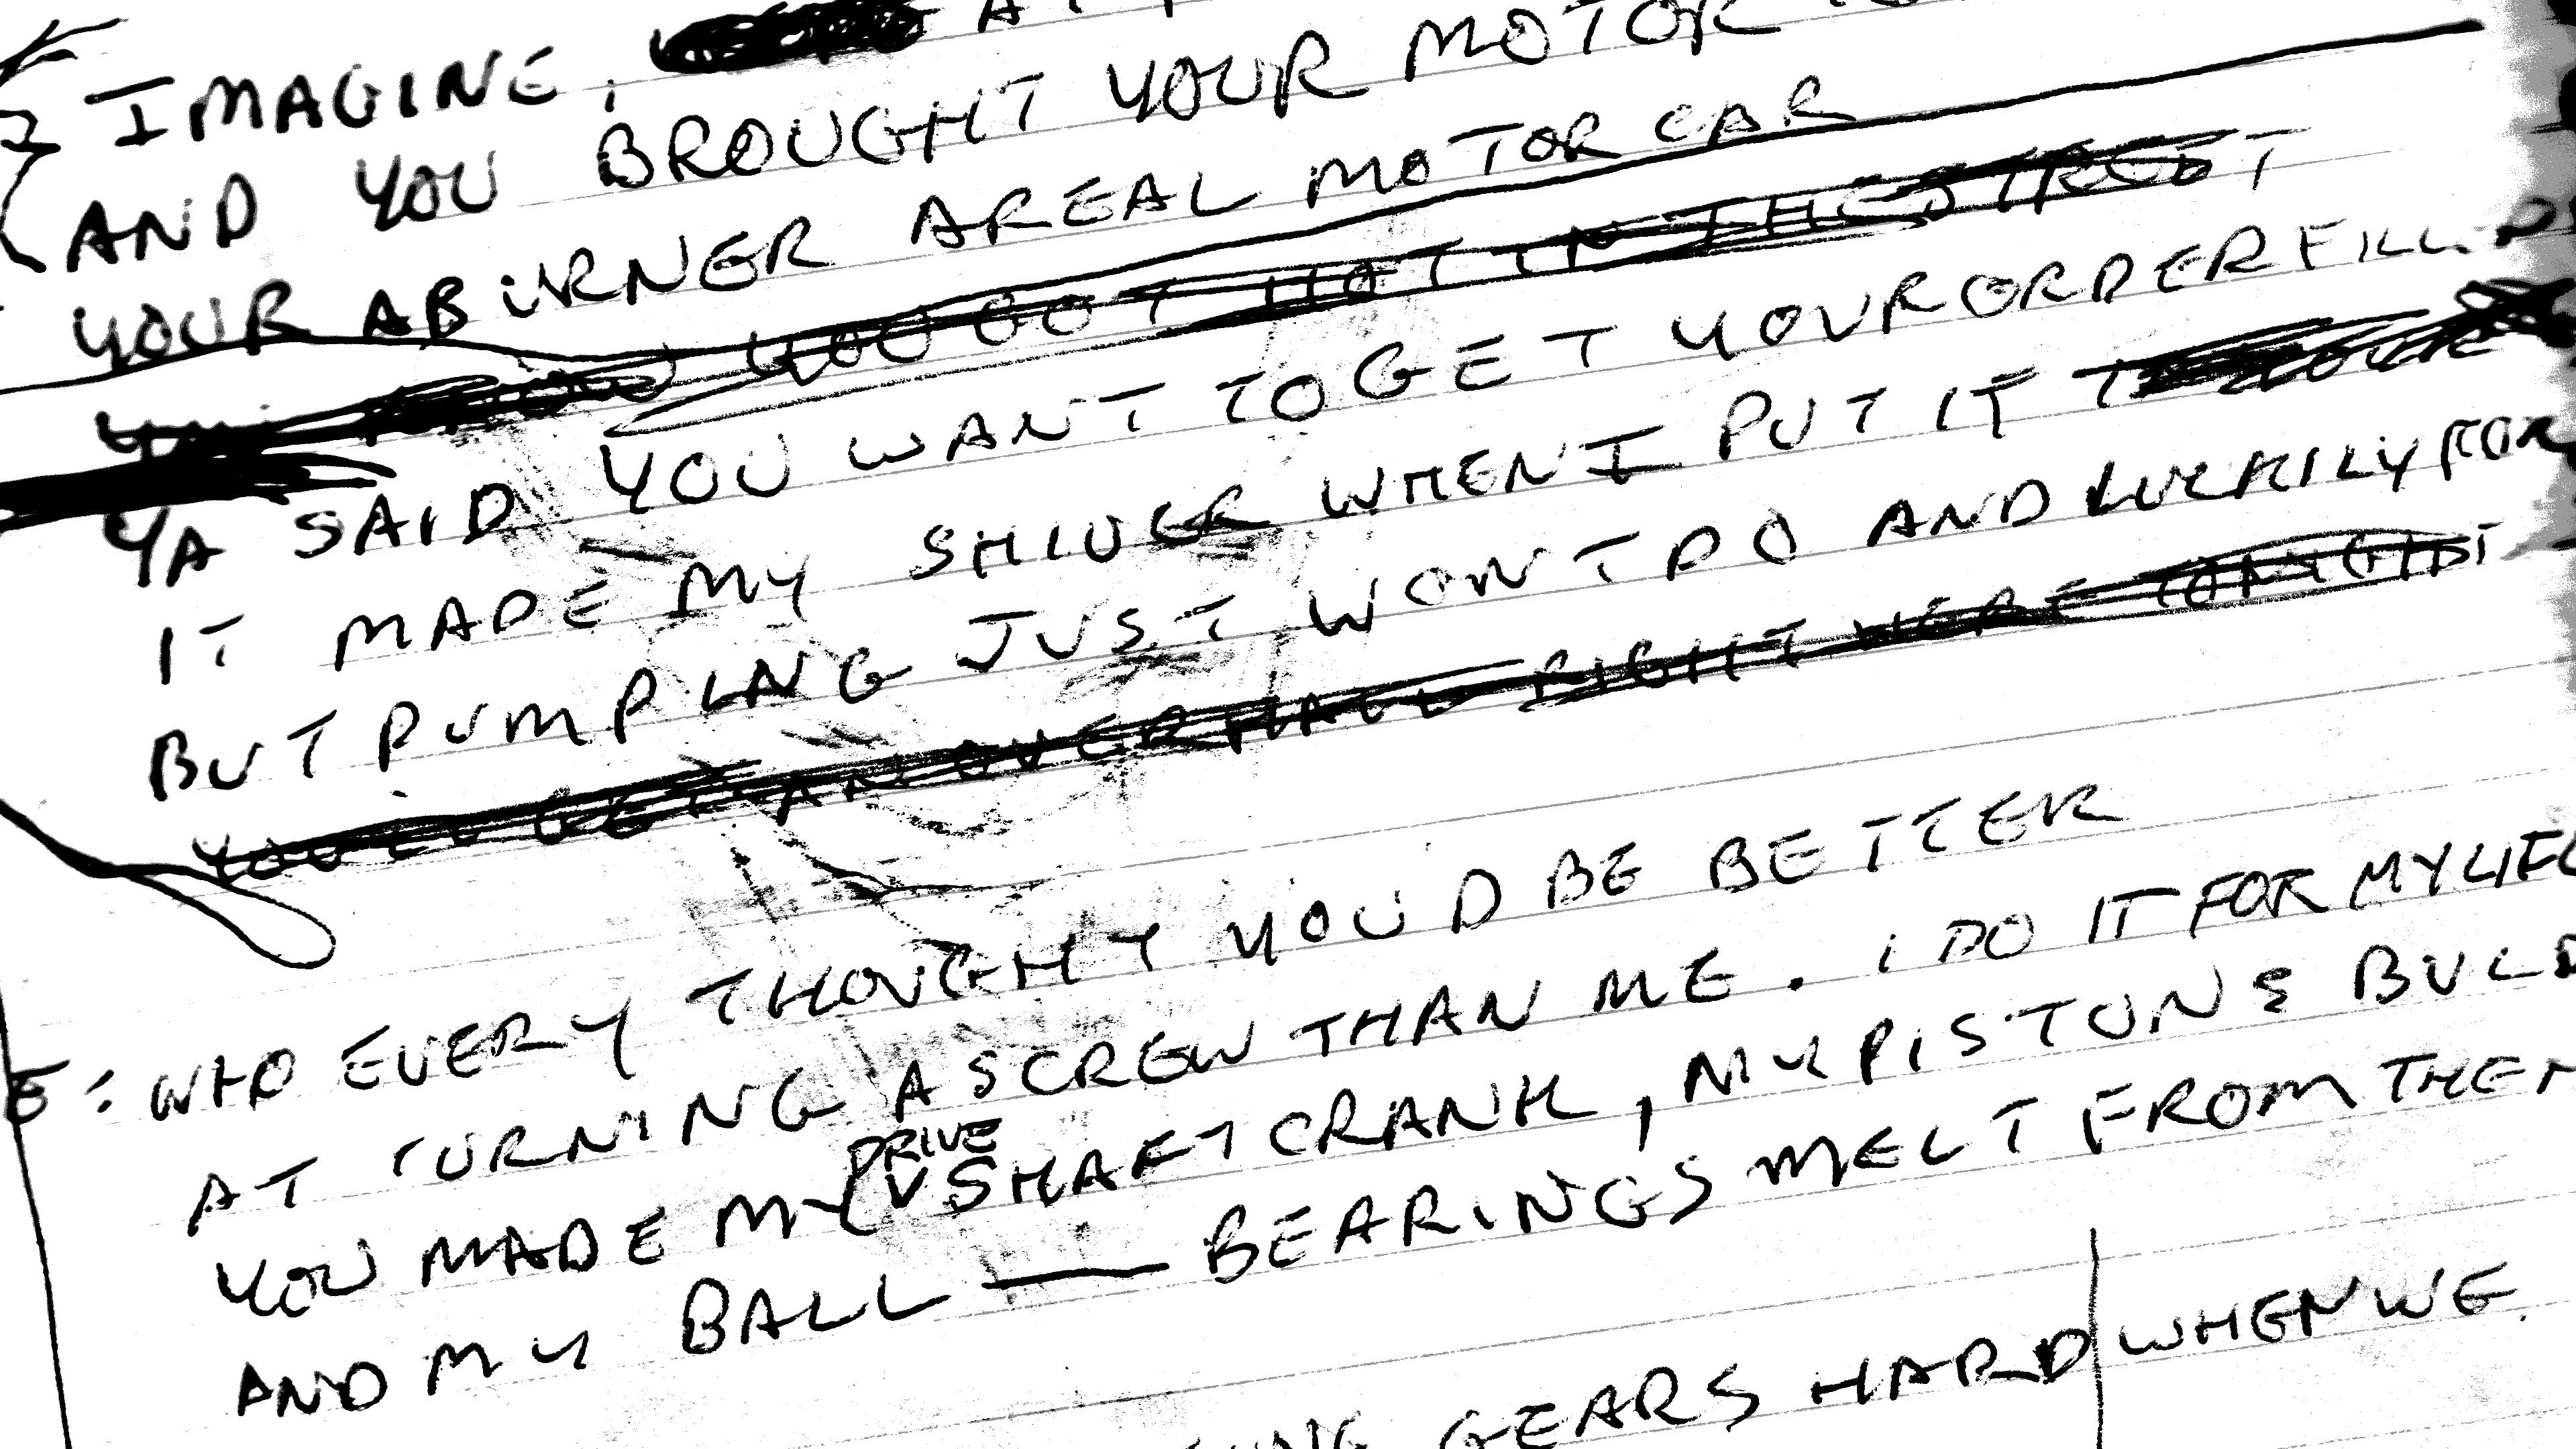 IMAGINE,
AND YOU BROUGHT YOUR MOTOR
YOUR A BURNER A REAL MOTOR CAR
YOU GOT HOT IN THE STREET
YA SAID YOU WANT TO GET YOUR ORDER FILL
IT MADE MY SHIVER WHEN I PUT IT
BUT PUMPING JUST WONT DO AND LUCKILY FOR
YOU LL GET AN OVERHALL RIGHT HERE TONIGHT
E: WHO EVERY THOUGHT YOUD BE BETTER
AT TURNING A SCREW THAN ME. I DO IT FOR MY LIFE
YOU MADE MY DRIVE SHAFT CRANK, MY PISTON & BULD
AND MY BALL — BEARINGS MELT FROM THE
GEARS HARD WHEN WE